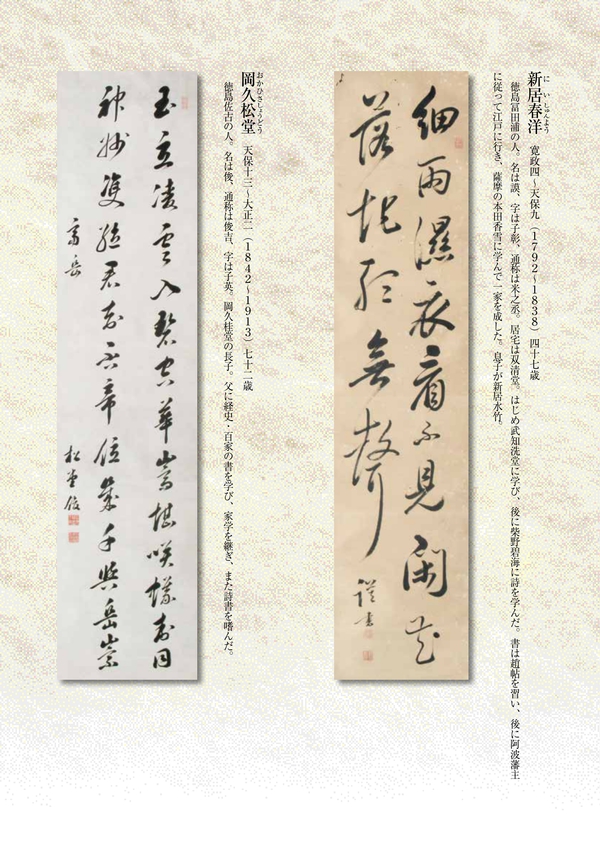 新居春洋 寛政四～天保九（1792～1838）四十七歳
にいしゅんよう
徳島冨田浦の人。名は謨、字は子彰、通称は米之丞。居宅は双清堂。はじめ武知洗堂に学び、後に柴野碧海に詩を学んだ。書は趙帖を習い、後に阿波藩主
に従って江戸に行き、薩摩の本田香雪に学んで一家を成した。息子が新居水竹。
細雨濕衣看不見閑花
落地聽無聲
謨書
岡久松堂 天保十三～大正二（1842～1913）七十二歳
おかひさしょうどう
徳島佐古の人。名は俊、通称は俊吉、字は子英。岡久桂堂の長子。父に経史・百家の書を学び、家学を継ぎ、また詩書を嗜んだ。
玉立凌雲入碧空華嵩堪咲蟻封同
神州雙絶君知否帝位巍乎與岳崇
富岳
松堂俊